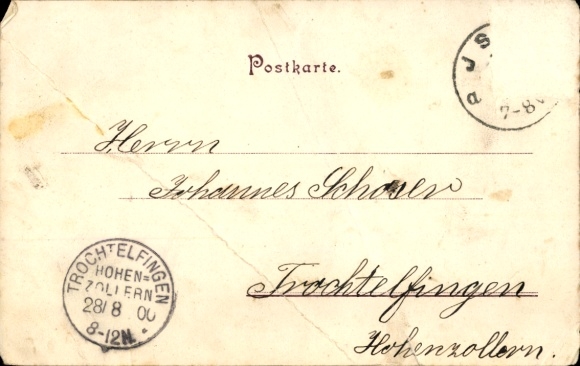 Postkarte.
P J S
7-8
Herrn
Johannes Schoser
Trochtelfingen
Hohenzollern.
TROCHTELFINGEN
HOHEN=
ZOLLERN
28/8 00
8-12N.